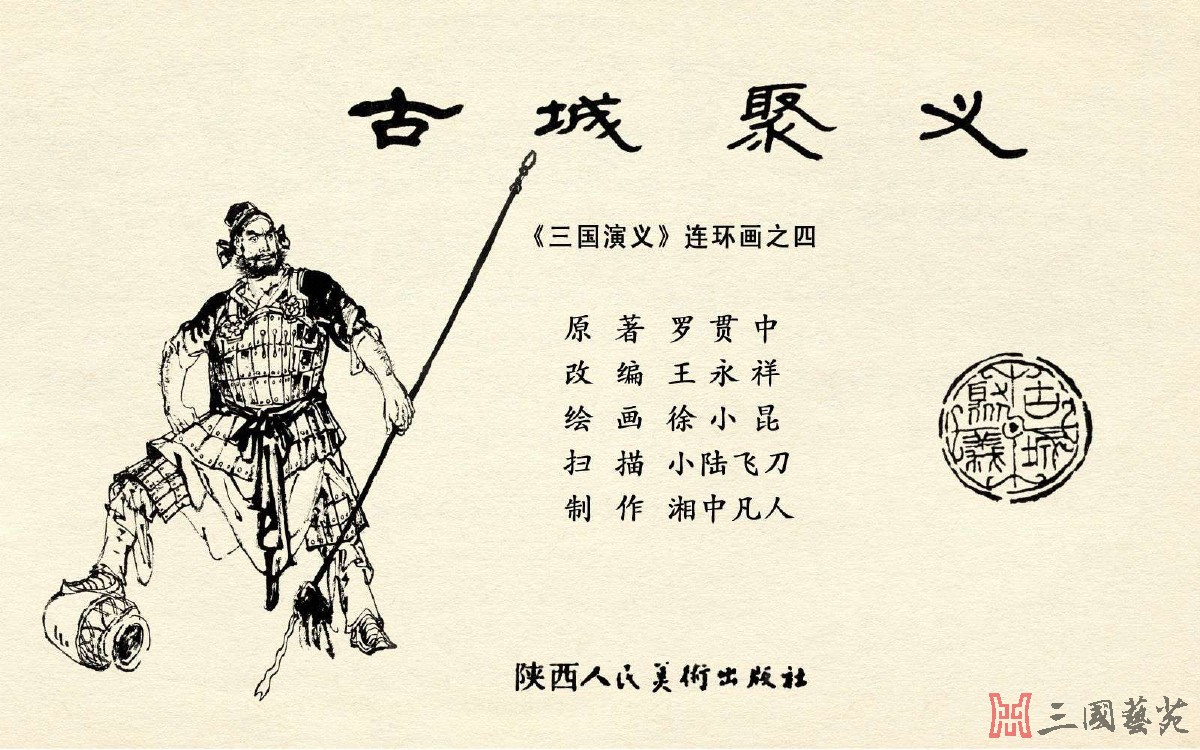 古城聚义
《三国演义》连环画之四
原著 罗贯中
改编 王永祥
绘画 徐小昆
扫描 小陆飞刀
制作 湘中凡人
古城
聚義
陕西人民美術出版社
三國藝苑